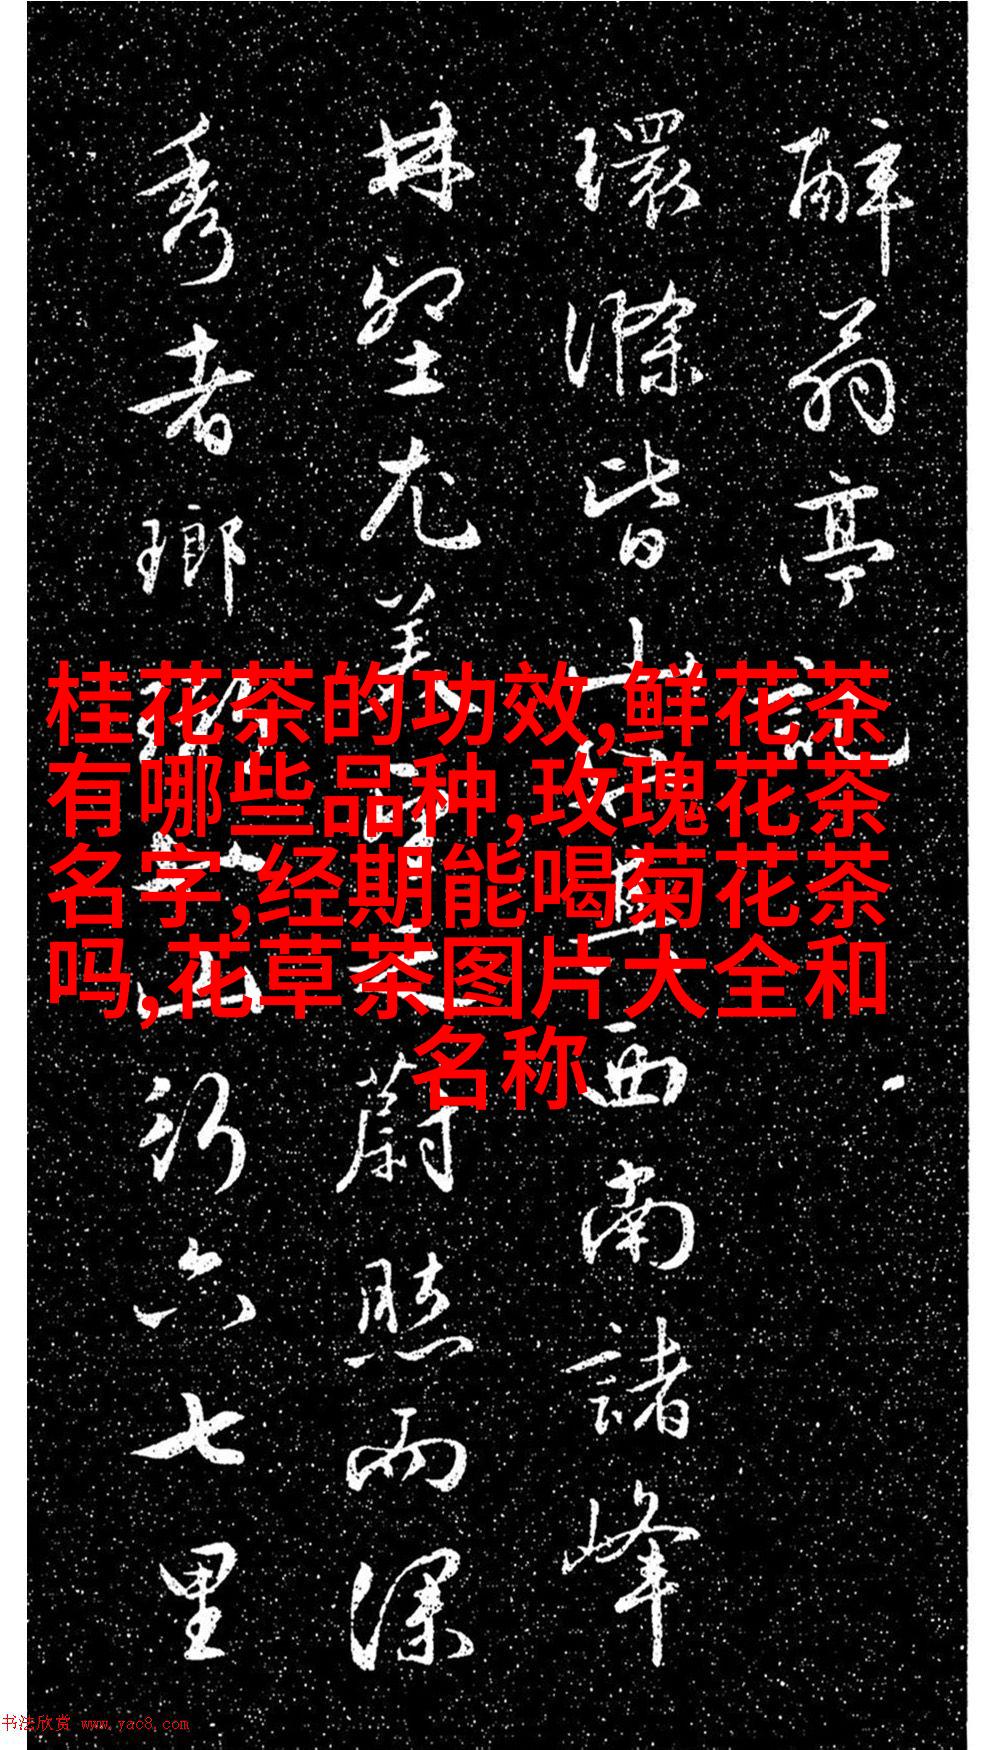 醉翁亭記
環滁皆山也其西南諸峰
林壑尤美望之蔚然而深
秀者瑯琊也山行六七里
桂花茶的功效,鲜花茶
有哪些品种,玫瑰花茶
名字,经期能喝菊花茶
吗,花草茶图片大全和
名称
书法欣赏 www.yac8.com